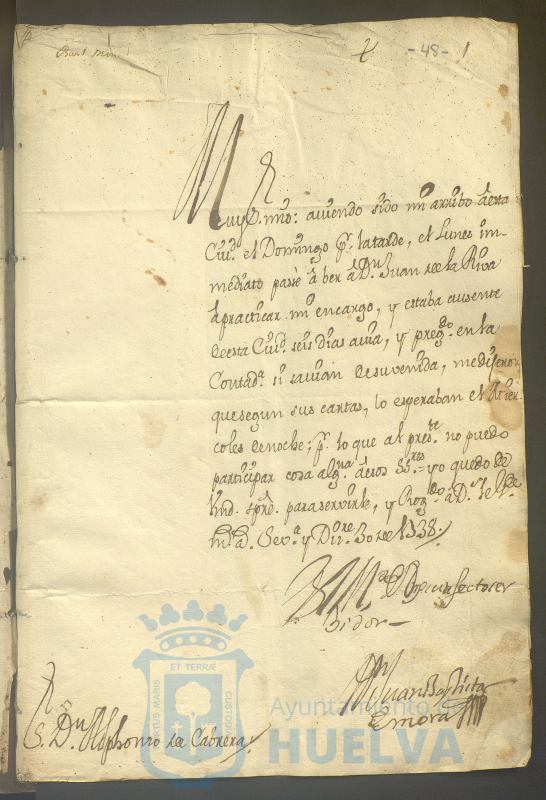 -48- 1
Muy S.r mio: aviendo sido mi arribo à esta
Ciu.d el Domingo p.r la tarde, el Lunes im-
mediato passè â ber â D.n Juan de la Riva
â practicar mi encargo, y estaba ausente
de esta Ciu.d seis dias avia, y preg.do en la
Contad.a si savian de su venida, me dijeron
que segun sus cartas, lo esperaban el Mier-
coles de noche; p.r lo que al pres.te no puedo
participar cosa alg.na â esos SS.res yo quedo de
Vmd. spre. para servirle, y Rog.do â D.s le g.de
m.s a.s Sev.a y Diz.re 30 de 1738.
B L M de Vm su afecto ser
bidor
Juan Baptista
Zmora
S.r D.n Alphonso de Cabrera
ET TERRAE
PORTUS MARIS
CUSTODIA
Ayuntamiento de
HUELVA